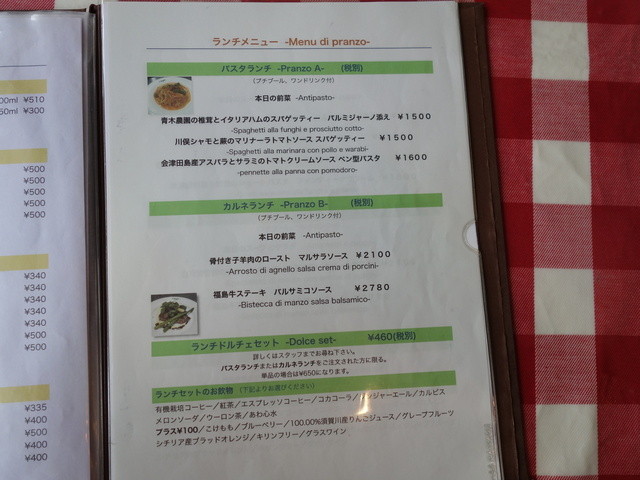 00ml ¥510
50ml ¥300
¥500
¥500
¥500
¥500
¥500
¥340
¥340
¥340
¥340
¥500
¥500
¥335
¥400
¥400
¥400
¥400
ランチメニュー -Menu di pranzo-
パスタランチ -Pranzo A- (税別)
(プチプール、ワンドリンク付)
本日の前菜 -Antipasto-
青木農園の椎茸とイタリアハムのスパゲッティー パルミジャーノ添え ¥1500
-Spaghetti alla funghi e prosciutto cotto-
川俣シャモと蕨のマリナーラトマトソース スパゲッティー ¥1500
-Spaghetti alla marinara con pollo e warabi-
会津田島産アスパラとサラミのトマトクリームソース ペン型パスタ ¥1600
-pennette alla panna con pomodoro-
カルネランチ -Pranzo B- (税別)
(プチプール、ワンドリンク付)
本日の前菜 -Antipasto-
骨付き子羊肉のロースト マルサラソース ¥2100
-Arrosto di agnello salsa crema di porcini-
福島牛ステーキ バルサミコソース ¥2780
-Bistecca di manzo salsa balsamico-
ランチドルチェセット -Dolce set- ¥460(税別)
詳しくはスタッフまでお尋ね下さい。
パスタランチまたはカルネランチをご注文された方に限る。
単品の場合は¥650になります。
ランチセットのお飲物 (下記よりお選びください)
有機栽培コーヒー/紅茶/エスプレッソコーヒー/コカコーラ/ジンジャーエール/カルピス
メロンソーダ/ウーロン茶/あわ心水
プラス¥100/こけもも/ブルーベリー/100.00%須賀川産りんごジュース/グレープフルーツ
シチリア産ブラッドオレンジ/キリンフリー/グラスワイン